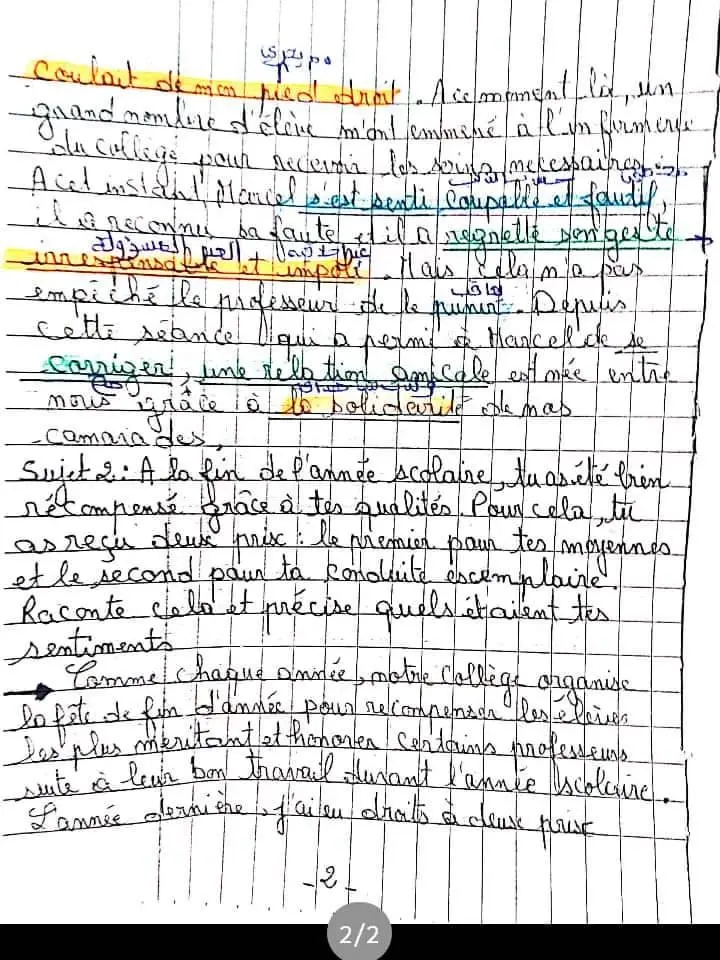 coulait de mon pied droit. A ce moment là, un
grand nombre d'élève m'ont emmené à l'infirmerie
du collège pour recevoir les soins necessaires.
A cet instant, Marcel s'est senti coupable et fautif,
il a reconnu sa faute et il a regretté son geste
irresponsable et impoli. Mais cela n'a pas
empêché le professeur de le punir. Depuis
cette séance qui a permi à Marcel de se
corriger, une relation amicale est née entre
nous grâce à la solidarité de mas
camarades,
Sujet 2: A la fin de l'année scolaire, tu as été bien
récompensé grâce à tes qualités. Pour cela, tu
as reçu deux prix: le premier pour tes moyennes
et le second pour ta conduite exemplaire.
Raconte cela et précise quels étaient tes
sentiments
Comme chaque année, notre collège organise
la fête de fin d'année pour recompenser les élèves
les plus méritant et honorer certains professeurs
suite à leur bon travail durant l'année scolaire.
L'année dernière, j'ai eu droits à deux prix
-2-
2/2